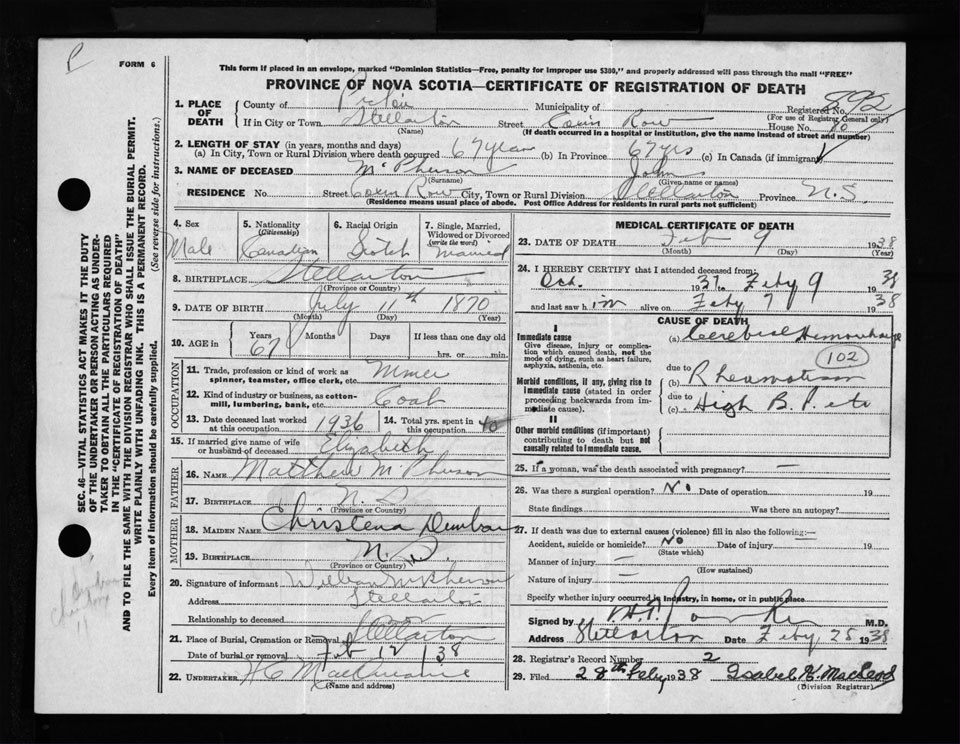 FORM 6
This form if placed in an envelope, marked "Dominion Statistics—Free, penalty for improper use $300," and properly addressed will pass through the mail "FREE"
PROVINCE OF NOVA SCOTIA—CERTIFICATE OF REGISTRATION OF DEATH
892
1. PLACE OF DEATH County of Pictou Municipality of Registered No.
(For use of Registrar General only)
If in City or Town Stellarton Street Row House No. 10
(Name) (If death occurred in a hospital or institution, give the name instead of street and number)
2. LENGTH OF STAY (in years, months and days)
(a) In City, Town or Rural Division where death occurred 67 years (b) In Province 67 yrs (c) In Canada (if immigrant)
3. NAME OF DECEASED McPherson John
(Surname) (Given name or names)
RESIDENCE No. Street Row City, Town or Rural Division Stellarton Province N.S.
(Residence means usual place of abode. Post Office Address for residents in rural parts not sufficient)
4. Sex Male
5. Nationality (Citizenship) Canadian
6. Racial Origin Scotch
7. Single, Married, Widowed or Divorced (write the word) Married
8. BIRTHPLACE Stellarton
(Province or Country)
9. DATE OF BIRTH July 11th 1870
(Month) (Day) (Year)
10. AGE in Years 67 Months Days If less than one day old hrs. or min.
OCCUPATION
11. Trade, profession or kind of work as spinner, teamster, office clerk, etc. Miner
12. Kind of industry or business, as cotton-mill, lumbering, bank, etc. Coal
13. Date deceased last worked at this occupation 1936
14. Total yrs. spent in this occupation 40
15. If married give name of wife or husband of deceased Elizabeth
FATHER
16. NAME Matthew McPherson
17. BIRTHPLACE N.S.
(Province or Country)
MOTHER
18. MAIDEN NAME Christena Dunbar
19. BIRTHPLACE N.S.
(Province or Country)
20. Signature of informant William McPherson
Address Stellarton
Relationship to deceased
21. Place of Burial, Cremation or Removal Stellarton
Date of burial or removal Feb 12 1938
22. UNDERTAKER
(Name and address)
MEDICAL CERTIFICATE OF DEATH
23. DATE OF DEATH Feb 9 1938
(Month) (Day) (Year)
24. I HEREBY CERTIFY that I attended deceased from:
Oct. 1937 to Feby 9 1938
and last saw him alive on Feby 7 1938
CAUSE OF DEATH
I
Immediate cause
Give disease, injury or complication which caused death, not the mode of dying, such as heart failure, asphyxia, asthenia, etc.
(a) Cerebral Hemorrhage
102
Morbid conditions, if any, giving rise to immediate cause (stated in order proceeding backwards from immediate cause)
due to
(b) Rheumatism
due to
(c) High B.
II
Other morbid conditions (if important) contributing to death but not causally related to immediate cause.
25. If a woman, was the death associated with pregnancy? —
26. Was there a surgical operation? No Date of operation 19
State findings Was there an autopsy?
27. If death was due to external causes (violence) fill in also the following:—
Accident, suicide or homicide? No Date of injury 19
(State which)
Manner of injury —
(How sustained)
Nature of injury —
Specify whether injury occurred in industry, in home, or in public place
Signed by M.D.
Address Stellarton Date Feby 25 1938
28. Registrar's Record Number 2
29. Filed 28th Feby 1938 Isabel H. MacLeod
(Division Registrar)
SEC. 46—VITAL STATISTICS ACT MAKES IT THE DUTY
OF THE UNDERTAKER OR PERSON ACTING AS UNDER-
TAKER TO OBTAIN ALL THE PARTICULARS REQUIRED
IN THE "CERTIFICATE OF REGISTRATION OF DEATH"
AND TO FILE THE SAME WITH THE DIVISION REGISTRAR WHO SHALL ISSUE THE BURIAL PERMIT.
WRITE PLAINLY WITH UNFADING INK. THIS IS A PERMANENT RECORD.
Every item of information should be carefully supplied. (See reverse side for instructions.)